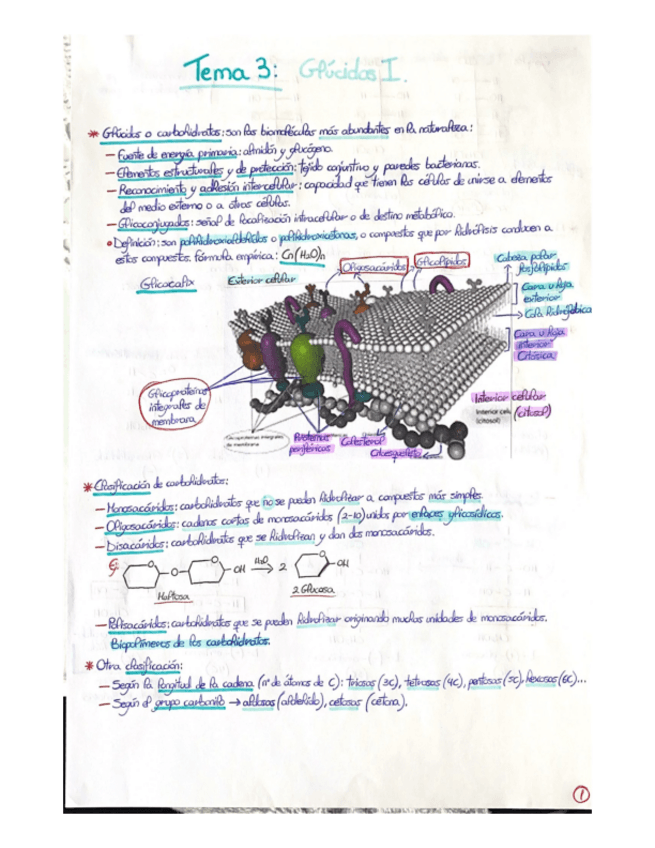 Tema 3: Glúcidos I.
* Glúcidos o carbohidratos: son las biomoléculas más abundantes en la naturaleza:
— Fuente de energía primaria: almidón y glucógeno.
— Elementos estructurales y de protección: tejido conjuntivo y paredes bacterianas.
— Reconocimiento y adhesión intercelular: capacidad que tienen las células de unirse a elementos
del medio externo o a otras células.
— Glicoconjugados: señal de localización intracelular o de destino metabólico.
• Definición: son polihidroxialdehídos o polihidroxicetonas, o compuestos que por hidrólisis conducen a
estos compuestos. fórmula empírica: Cn(H2O)n
Glicocalix
Exterior celular
Oligosacáridos
Glicolípidos
Cabeza polar
fosfolípidos
Cara u hoja
exterior
Cola hidrofóbica
Cara u hoja
interior
Citósica
Glicoproteínas
integrales de
membrana
Interior celular
(citosol)
Interior celu
(citosol)
Glicoproteínas integrales
de membrana
Proteínas
periféricas
Colesterol
Citoesqueleto
* Clasificación de carbohidratos:
— Monosacáridos: carbohidratos que no se pueden hidrolizar a compuestos más simples.
— Oligosacáridos: cadenas cortas de monosacáridos (2-10) unidos por enlaces glicosídicos.
— Disacáridos: carbohidratos que se hidrolizan y dan dos monosacáridos.
O O O OH H2O → 2 O OH
Maltosa
2 Glucosa
— Polisacáridos: carbohidratos que se pueden hidrolizar originando muchas unidades de monosacáridos.
Biopolímeros de los carbohidratos.
* Otra clasificación:
— Según la longitud de la cadena (nº de átomos de C): triosas (3C), tetrosas (4C), pentosas (5C), hexosas (6C)...
— Según el grupo carbonilo → aldosas (aldehído), cetosas (cetona).
1